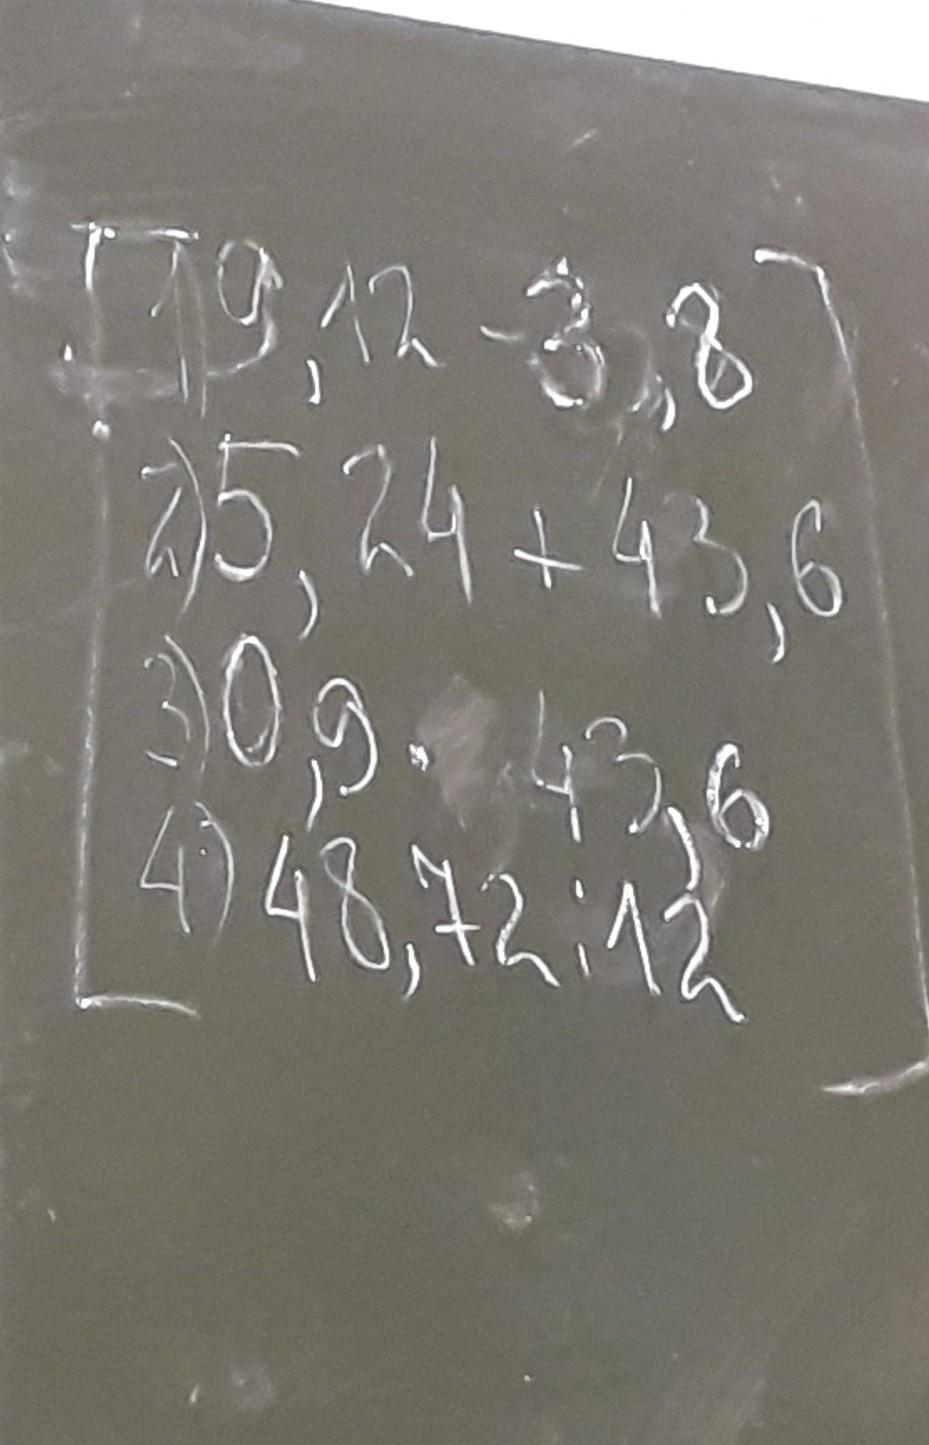 1) 9,12 - 3,8
2) 5,24 + 43,6
3) 0,9 · 43,6
4) 48,72 : 12